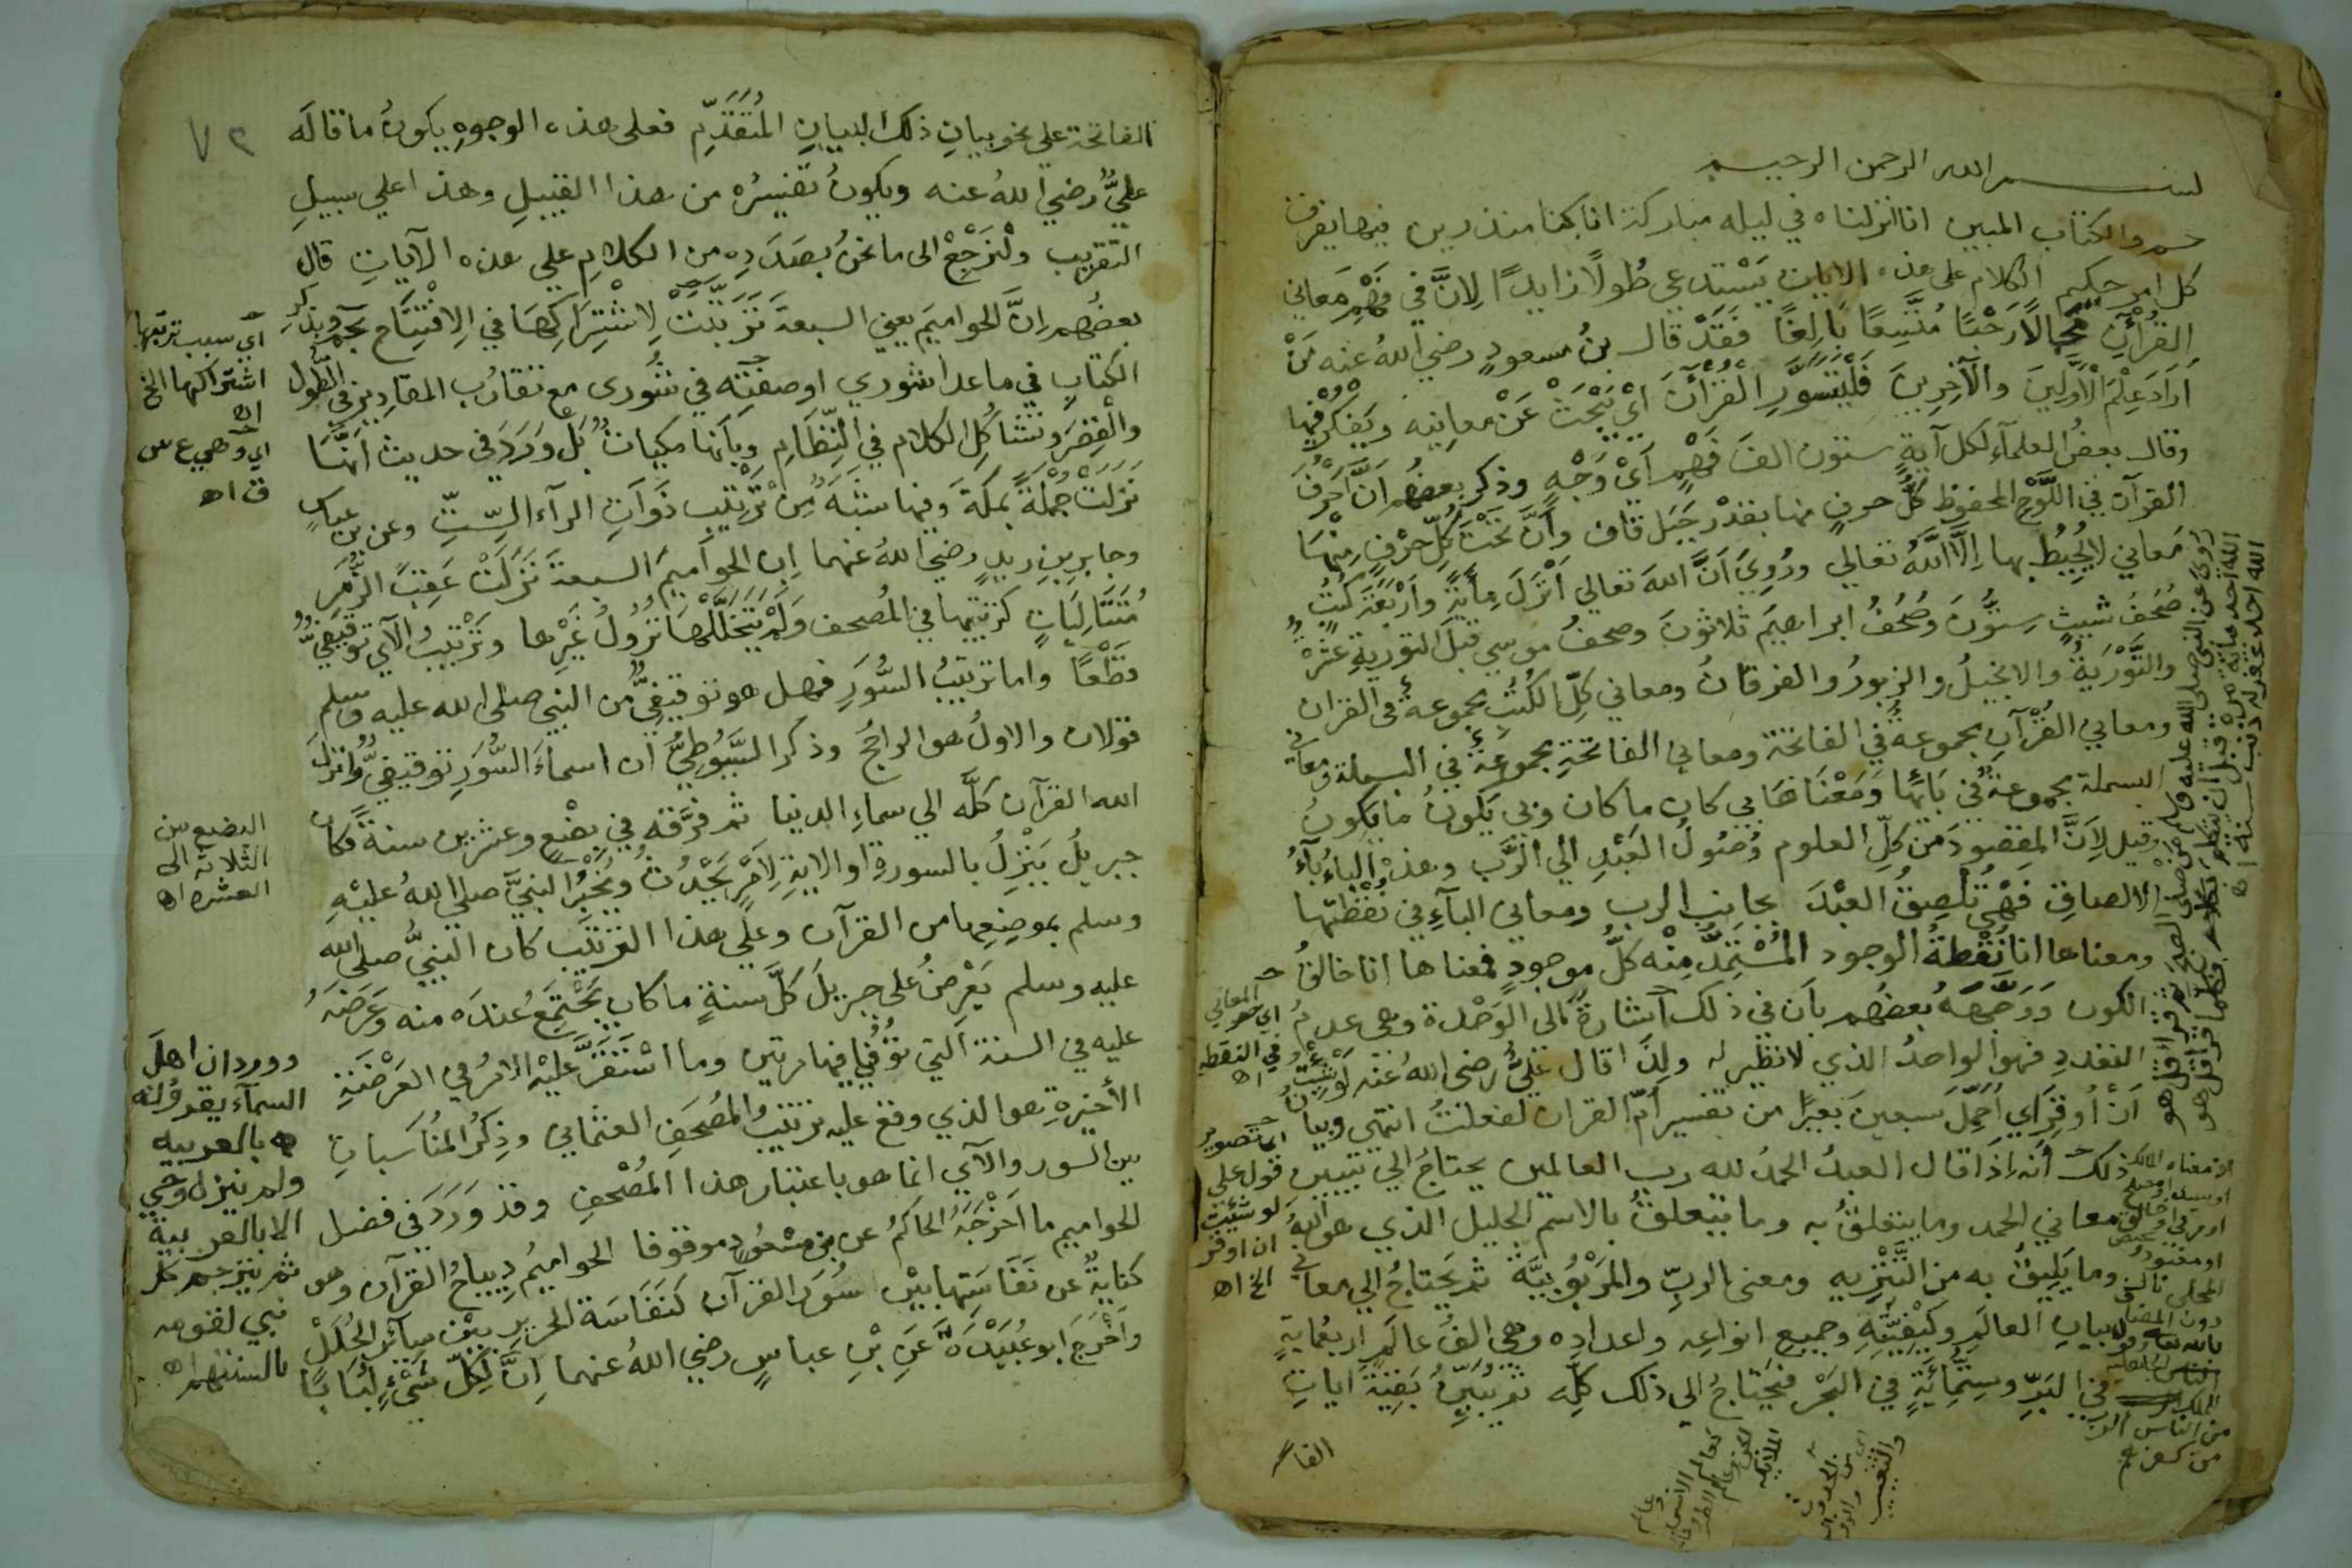 بسم الله الرحمن الرحيم
حم والكتاب المبين انا انزلناه في ليله مباركة انا كنا منذرين فيها يفرق
كل امر حكيم الكلام على هذه الايات يَسْتدعي طُولًا زايدًا لِانَّ في فَهْمِ مَعاني
القُرْآنِ مَجالًا رَحْبًا مُتَّسِعًا بَالِغًا فَقَدْ قال بنُ مسعودٍ رضي اللهُ عنه مَنْ
اَرَادَ عِلْمَ الْاَوَّلِينَ والْآخِرِينَ فَلْيَتَسَوَّرِ القُرْآنَ اَيْ يَبْحَثْ عَنْ معانِيه ويَفْكُرْ فيها
وقال بعضُ العلمآءِ لكل آيةٍ ستون الفَ فَهْمٍ اَيْ وَجْهٍ وذكر بعضُهم انَّ اَحْرُفَ
القرآن في اللَّوْحِ المحفوظ كلُّ حرفٍ منها بقدْر جَبَل قاف وَاَنَّ تَحْتَ كُلِّ حَرْفٍ مِنْهَا
مَعاني لا يُحِيطُ بها اِلَّا اللَّهُ تعالي ورُوِيَ اَنَّ اللهَ تعالي اَنْزَلَ مِأيَةً وَاَرْبَعَةَ كُتُبٍ
صُحُفُ شيثٍ سِتُّونَ وَصُحُفُ ابراهيمَ ثلاثونَ وصحفُ موسي قبل التوريةِ عَشْرَةٌ
والتَّوْرَيةُ والانجيلُ والزبورُ والفرقانُ ومعاني كلِّ الكُتُبِ مجموعةٌ في القران
ومعاني القُرْآنِ مجموعةٌ في الفاتحة ومعاني الفاتحةِ مجموعةٌ في البسملة ومعاني
البسملة مجموعةٌ في بَائِها وَمَعْنَاهَا بي كان ما كان وبي يَكُونُ ما يكونُ
وقيل لِاَنَّ المقصودَ من كلِّ العلوم وُصُولُ العَبْدِ الي الرَّب وهذه الباءُ باءُ
الالصاقِ فَهْيَ تُلْصِقُ العبْدَ بجانِبِ الرب ومعاني البآءِ في نُقْطَتِها
ومعناها انا نُقْطةُ الوجودِ المُسْتَمِدُّ مِنْه كلُّ موجودٍ فمعناها انا خالقُ
الكون وَوَجَّهَهُ بعضُهم بأن في ذلك اشارةً الى الوَحْدة وهي عدمُ
التعددِ فهو الواحدُ الذي لا نظير له ولِذَا قال عَلِيٌّ رضي اللهُ عَنْه لَوْ شِئْتُ
اَنْ اُوقِرَ اي اُحَمِّلَ سبعينَ بَعِيرًا من تفسير اُمِّ القران لفعلتُ انتهي وبيانُ
ذلك أنّه اِذَا قال العبدُ الحمدُ لله رب العالمين يحتاجُ الي تبيين
معاني الحمد وما يتعلقُ به وما يتعلقُ بالاسم الجليل الذي هو اللهُ
وما يَلِيقُ به من التَّنْزِيه ومعني الربِّ والمَرْبُوبيَّة ثم يَحْتاجُ الي معاني
بيان العالَمِ وكَيْفِيَّتِهِ وجميع انواعِه واعدادِه وهي الفُ عالَمٍ اربعُمايةٍ
في البَرِّ وسِتُّمائَةٍ في البَحْر فيَحْتاجُ الي ذلك كلِّه ثم يُبَيِّنُ بَقِيَّةَ اياتِ
الفا
اي هو المعاني
في النقطه
اه
اي تصوير
قول علي
لو شئت
ان اوقر
الخ اه
روي عن النبي صلى الله عليه وسلم من صلى
الله احد
الله احد غفر له ذنب سنة اه
٧٢
الفاتحة علي نحو بيانِ ذلك البيانِ المُتَقَدِّمِ فعلى هذه الوجوهِ يكونُ ما قالَه
عليٌّ رضي اللهُ عنه ويكونُ تفسيرُه من هذا القبيلِ وهذا علي سبيلِ
التقريبِ ولْنَرْجِعْ الى ما نحنُ بصَدَدِه من الكلامِ علي هذه الآياتِ قال
بعضُهم اِنَّ الحواميمَ يعني السبعةَ تَرَتَّبَتْ لِاشْتِرَاكِهَا في الِافْتِتَاح بحم وبذِكْرِ
الكتابِ في ما عدا شوري او صفتِه في شُورى مع تقارُب المقاديرِ في الطُول
والقِصَرِ وتشاكُلِ الكلامِ في النِّظَامِ وبأنها مكياتٌ بَلْ وَرَدَ في حديث اَنَّهَا
نَزَلَتْ جُمْلَةً بمَكةَ وفيها شَبَهٌ مِنْ تَرْتِيبِ ذَوَاتِ الرآءِ السِّتِّ وعن بن عباسٍ
وجابرِ بنِ زيدٍ رضيَ اللهُ عنهما اِن الحواميمَ السبعةَ نَزَلَتْ عَقِبَ الزُّمَرِ
مُتَتَالِيَاتٍ كترتيبِها في المُصحف وَلَمْ يَتَخَلَّلْهَا نُزُولُ غَيْرِها وتَرْتيبُ الآيِ تَوْقِيفيٌّ
قَطْعًا واما ترتيبُ السُّوَرِ فهل هو توقيفِيٌّ من النبي صلى الله عليه وسلم
قولان والاولُ هو الراجحُ وذكر السُّيُوطِيُّ ان اسماءَ السُّوَرِ توقيفيٌّ واَنْزَلَ
الله القرآن كلَّه الي سماءِ الدنيا ثم فَرَّقَه في بِضْعٍ وعشرين سنةً فكان
جبريلُ يَنْزِلُ بالسورةِ او الايةِ لِاَمْرٍ يَحْدُثُ ويُخْبِرُ النبيَّ صلي اللهُ عليْهِ
وسلم بموضِعِها من القرآن وعلي هذا الترتيب كان النبيُّ صلي الله
عليه وسلم يَعْرِضُ على جبريلَ كلَّ سنةٍ ما كان يَجْتَمِعُ عندَه منه وعَرَضَهُ
عليه في السنة الَّتي تُوُفِّيَ فيها مرتين وما اسْتَقَرَّ عليْهِ الامرُ في العَرْضَةِ
الأخيرةِ هو الذي وقع عليه ترتيبُ المُصحَفِ العثماني وذِكْرُ المُنَاسَباتِ
بين السور والآيِ انما هو باعتبار هذا المُصْحفِ وقد وَرَدَ في فضل
الحواميم ما اَخْرَجَهُ الحاكمُ عن بن مَسْعُودٍ موقوفا الحواميمُ دِيباجُ القرآن وهو
كنايةٌ عن نَفَاسَتِها بيْن سُوَرِ القرآن كنَفَاسَة الحرير بيْن سآئرِ الحُلَلْ
واَخْرَجَ ابو عُبَيْدَةَ عَنِ بْنِ عباسٍ رضي اللهُ عنهما اِنَّ لِكُلِّ شَيْءٍ لُبَابًا
اي سبب ترتيبها
اشتراكها الخ
اه
اي وهي ع س
ق اه
البضع من
الثلاثة الى
العشره اه
وورد ان اهل
السمآء يقرؤنه
بالعربيه
ولم ينزل وحي
الا بالعربية
ثم يترجم كل
نبي لقومه
بالسنتهم اه